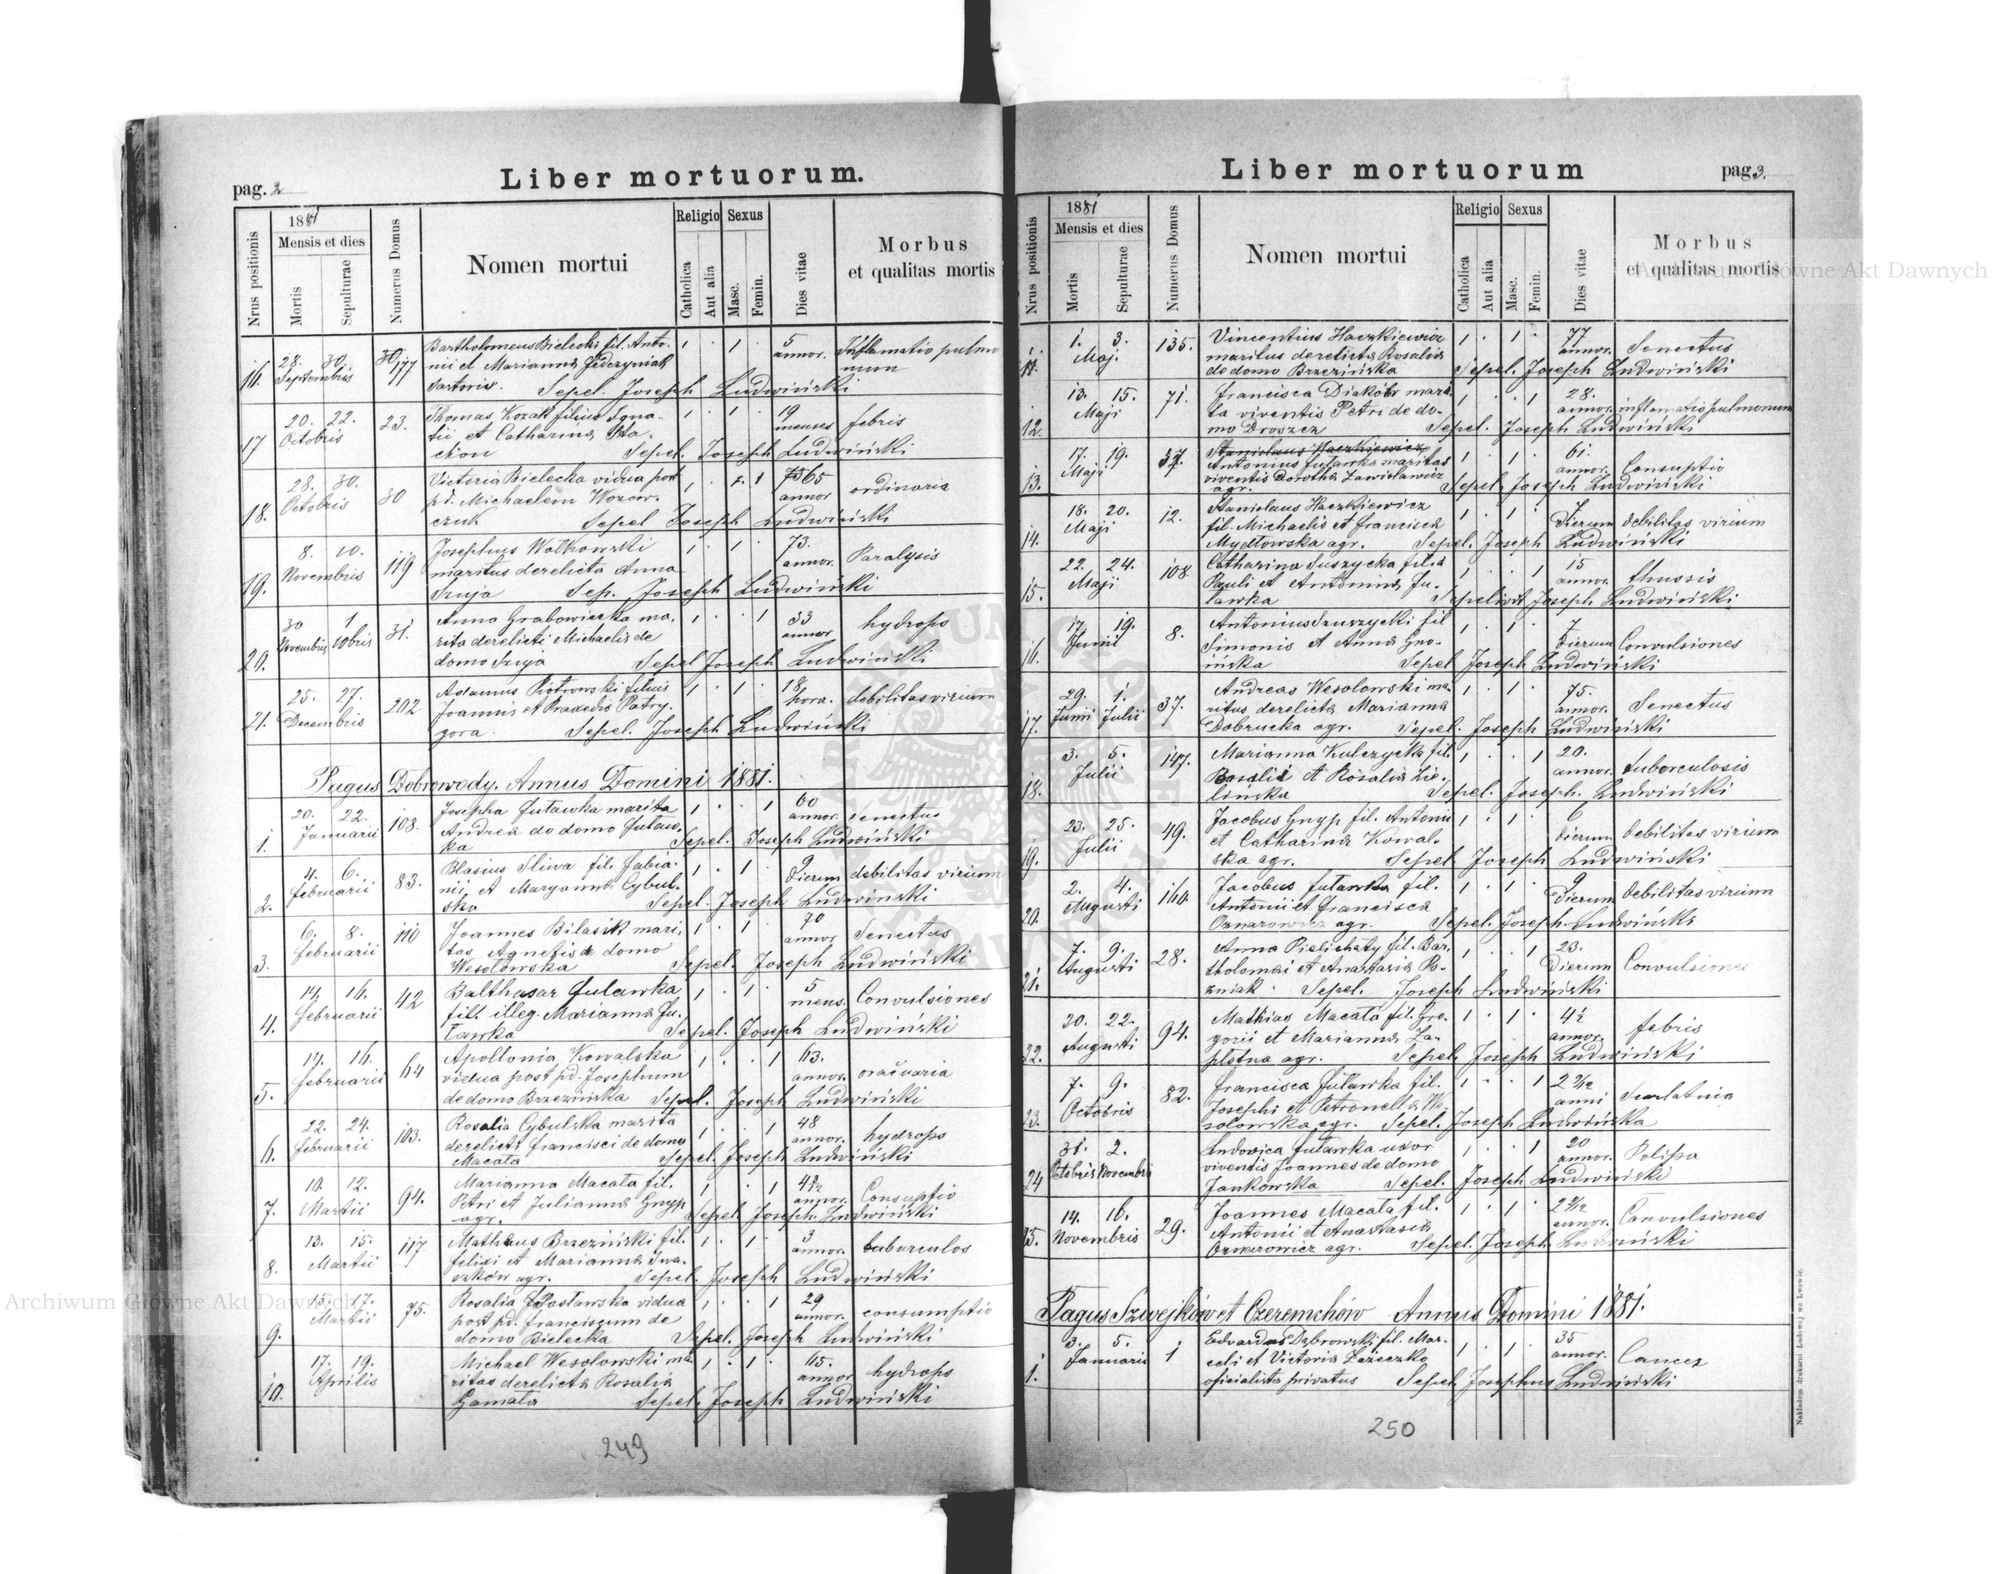 pag. 2
Liber mortuorum.
Nrus positionis
1881
Mensis et dies
Mortis
Sepulturae
Numerus Domus
Nomen mortui
Religio
Catholica
Aut alia
Sexus
Masc.
Femin.
Dies vitae
Morbus
et qualitas mortis
16. 28. 30. Septembris 30/177 Bartholomeus Bielecki fil. Anto- 1 . 1 . 5 annor. Inflamatio pulmo
nii et Marianna Fedczyniak num
Sartoris. Sepel. Joseph Ludwiński
17 20. 22. Octobris 23. Thomas Kozak filius Igna- 1 . 1 . 19 menses febris
tii et Catharina
Sepel. Joseph Ludwiński
18. 28. 30. Octobris 30 Victoria Bielecka vidua post 1 . 1 65 annor ordinaria
pd. Michaelem Wozow-
czuk Sepel Joseph Ludwiński
19. 8. 10. Novembris 119 Josephus Wolkowski 1 . 1 . 73. annor. Paralysis
maritus derelicta Anna
Szuja Sep. Joseph Ludwiński
20. 30 Novembris 1 10bris 31. Anna Grabowiecka ma- 1 . . 1 33 annor hydrops
rita derelicti Michaelis de
domo Szuja Sepel Joseph Ludwiński
21. 25. 27. Decembris 202 Adamus Piotrowski filius 1 . 1 . 18 hora. debilitas virium
Joannis et Praxedis Patry-
gora. Sepel. Joseph Ludwiński
Pagus Dobrowody. Annus Domini 1881.
1. 20. 22. Januarii 108. Josepha Futawka marita 1 . . 1 60 annor. Senectus
Andrea de domo Futaw-
ka Sepel. Joseph Ludwiński
2. 4. 6. Februarii 83. Blasius Sliwa fil. Fabia- 1 . 1 . 9 Dierum debilitas virium
nii et Maryanna Cybul-
ska Sepel. Joseph Ludwiński
3. 6. 8. Februarii 110 Joannes Bilasik mari- 1 . 1 . 70 annor Senectus
tus Agnetis de domo
Wesolowska Sepel. Joseph Ludwiński
4. 14. 16. Februarii 42 Balthasar Futawka 1 . 1 . 5 mens. Convulsiones
fill illeg. Marianna Fu-
tawka Sepel. Joseph Ludwiński
5. 14. 16. Februarii 64 Apollonia Kowalska 1 . . 1 63. annor.
vidua post pd. Josephum
de domo Brzezińska Sepel. Joseph Ludwiński
6. 22. 24. Februarii 103. Rosalia Cybulska marita 1 . . 1 48 annor. hydrops
derelicti Francisci de domo
Macata Sepel. Joseph Ludwiński
7. 10. 12. Martii 94. Marianna Macata fil. 1 . . 1 4½ annor. Consuptio
Petri et Julianna Gnyp
agr. Sepel. Joseph. Ludwiński
8. 13. 15. Martii 117 Mathaus Brzeziński fil. 1 . 1 . 3 annor. tuberculos
Felixi et Marianna Iwa-
szków agr. Sepel. Joseph Ludwiński
9. 15. 17. Martii 75. Rosalia Pastawska vidua 1 . . 1 29 annor. consumptio
post pd. Franciscum de
domo Bielecka Sepel. Joseph Ludwiński
10. 17. 19. Aprilis Michael Wesolowski ma- 1 . 1 . 65. annor hydrops
ritus derelicta Rosalia
Gamata Sepel. Joseph Ludwiński
249
Liber mortuorum
pag. 3.
Nrus positionis
1881
Mensis et dies
Mortis
Sepulturae
Numerus Domus
Nomen mortui
Religio
Catholica
Aut alia
Sexus
Masc.
Femin.
Dies vitae
Morbus
et qualitas mortis
11. 1. 3. Maji 135. Vincentius Haczkiewicz 1 . 1 . 77 annor. Senectus
maritus derelicta Rosalia
de domo Brzezińska Sepel. Joseph Ludwiński
12. 13. 15. Maji 71. Francisca Diaków mari- 1 . . 1 28. annor. inflamatio pulmonum
ta viventis Petri de do-
mo Droszcz Sepel. Joseph Ludwiński
13. 17. 19. Maji 37. Stanislaus Haczkiewicz
Antonius Futawka maritus 1 . 1 . 61. annor. Consuptio
viventis Dorotha Zawislawicz
agr. Sepel. Joseph Ludwiński
14. 18. 20. Maji 12. Stanislaus Haczkiewicz 1 . 1 . 7 Dierum debilitas virium
fil. Michaelis et Francisca
Mydlowska agr. Sepel. Joseph Ludwiński
15. 22. 24. Maji 108. Catharina Suszycka filia 1 . . 1 15 annor. thussis
Pauli et Antonina Fu-
tawka Sepelivit Joseph Ludwiński
16. 17. 19. Junii 8. Antonius Szuszycki fil 1 . 1 . 7 Dierum Convulsiones
Simonis et Anna Gno-
ińska Sepel Joseph Ludwiński
17. 29. Junii 1. Julii 37. Andreas Wesolowski ma- 1 . 1 . 75. annor. Senectus
ritus derelicta Marianna
Dobrucka agr. Sepel. Joseph Ludwiński
18. 3. 5. Julii 147. Marianna Kulczycka fil. 1 . . 1 20. annor. tuberculosis
et Rosalia Zie-
lińska Sepel. Joseph. Ludwiński
19. 23. 25. Julii 49. Jacobus Gnyp fil. Antonii 1 . 1 . 6 Dierum debilitas virium
et Catharina Kowal-
ska agr. Sepel Joseph Ludwiński
20. 2. 4. Augusti 160. Jacobus Futawka fil. 1 . 1 . 9 Dierum debilitas virium
Antonii et Francisca
Oznarowicz agr. Sepel. Joseph. Ludwiński
21. 7. 9. Augusti 28. Anna Pielichaty fil. Bar- 1 . . 1 23. Dierum Convulsiones
tholomai et Anastasia Po-
zniak Sepel. Joseph Ludwiński
22. 20. 22. Augusti 94. Mathias Macata fil. Gre- 1 . 1 . 4½ annor. febris
gorii et Marianna Za-
pletna agr. Sepel. Joseph Ludwiński
23. 7. 9. Octobris 82. Francisca Futawka fil. 1 . . 1 2 anni Scarlatina
Josephi et Petronella We-
solowska agr. Sepel. Joseph Ludwińska
24 31. Octobris 2. Novembris Ludovica Futawka uxor 1 . . 1 20 annor. Polipa
viventis Joannes de domo
Jankowska Sepel. Joseph Ludwiński
25. 14. 16. Novembris 29. Joannes Macata fil. 1 . 1 . 2 annor. Convulsiones
Antonii et Anastasia
Oznarowicz agr. Sepel. Joseph Ludwiński
Pagus Szwejków et Czeremchów Annus Domini 1881.
1. 3. 5. Januarii 1 Edvardus Dąbrowski fil. Mar- 1 . 1 . 35 annor. Cancer
celi et Victoria Zażeczko
oficialista privatus Sepel Josephus Ludwiński
250
Nakładem drukarni Ludowej we Lwowie.
Archiwum Główne Akt Dawnych
Archiwum Główne Akt Dawnych